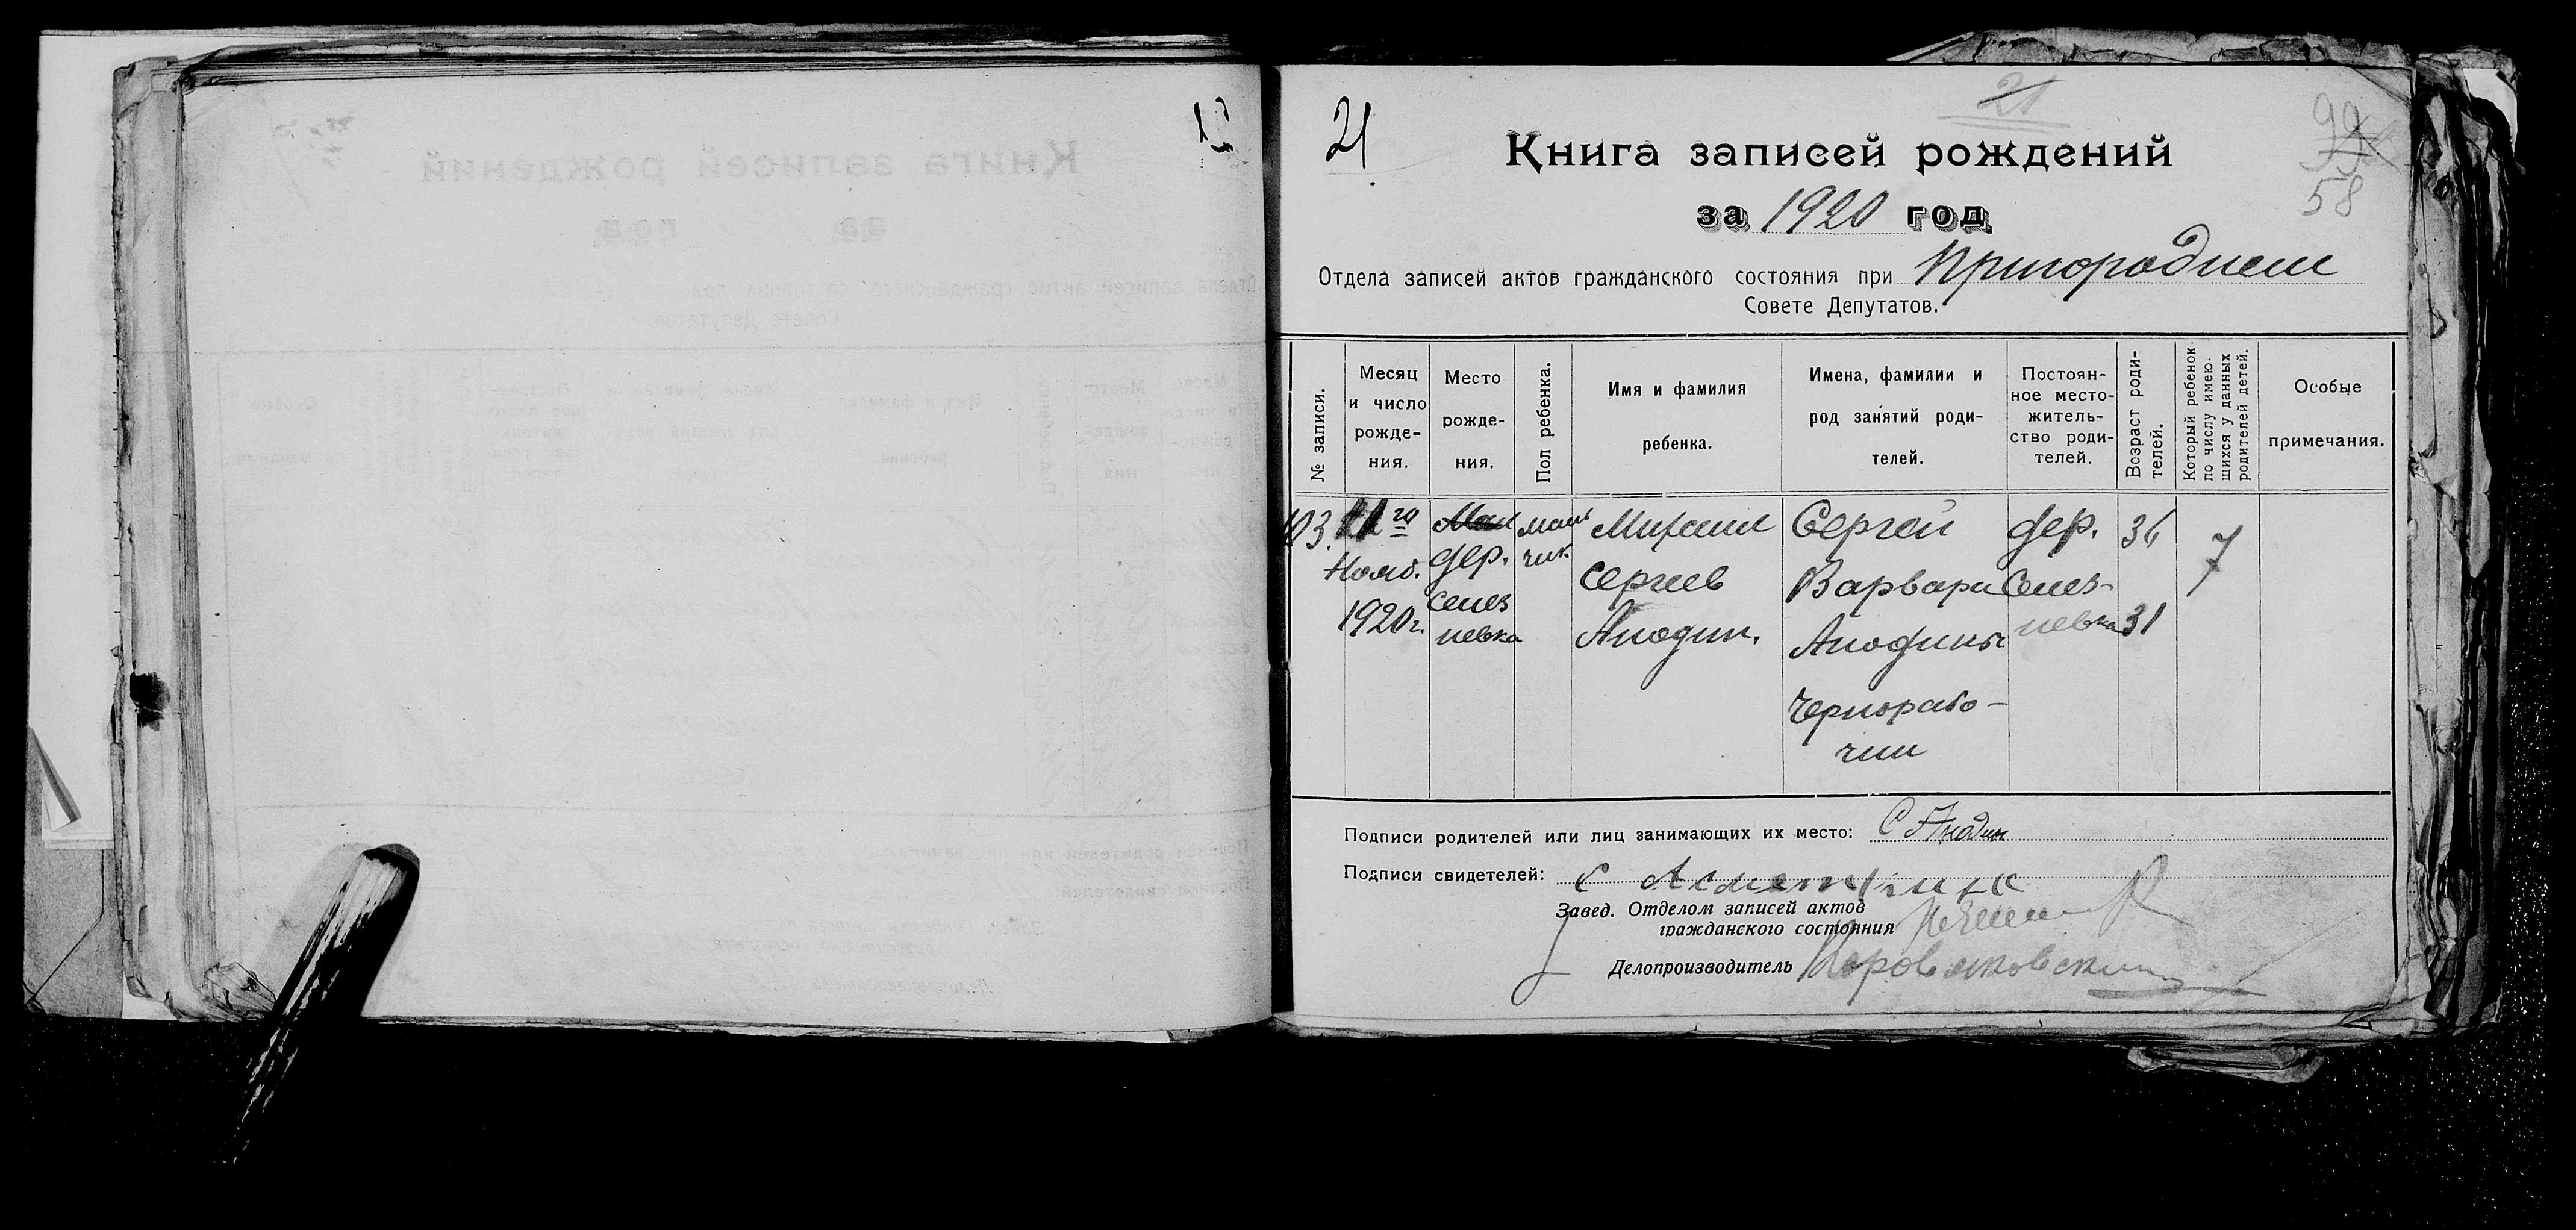 21
21
99
58
Книга записей рождений
за 1920 год
Отдела записей актов гражданского состояния при Пригороднем
Совете Депутатов.
№ записи.
Месяц и число рожде- ния.
Место рожде- ния.
Пол ребенка.
Имя и фамилия ребенка.
Имена, фамилии и род занятий роди- телей.
Постоян- ное место- житель- ство роди- телей.
Возраст роди- телей.
Который ребенок по числу имею- щихся у данных родителей детей.
Особые примечания.
103.
го
Нояб.
1920 г.
дер.
Селез
невка
маль
чик
Михаил
Сергеев
Анодин.
Сергей
Варвара
Анодины
Чернорабо-
чий
дер.
Селез-
невка
36
31
7
Подписи родителей или лиц занимающих их место: С Анодин
Подписи свидетелей: С
Завед. Отделом записей актов
гражданского состояния
Делопроизводитель